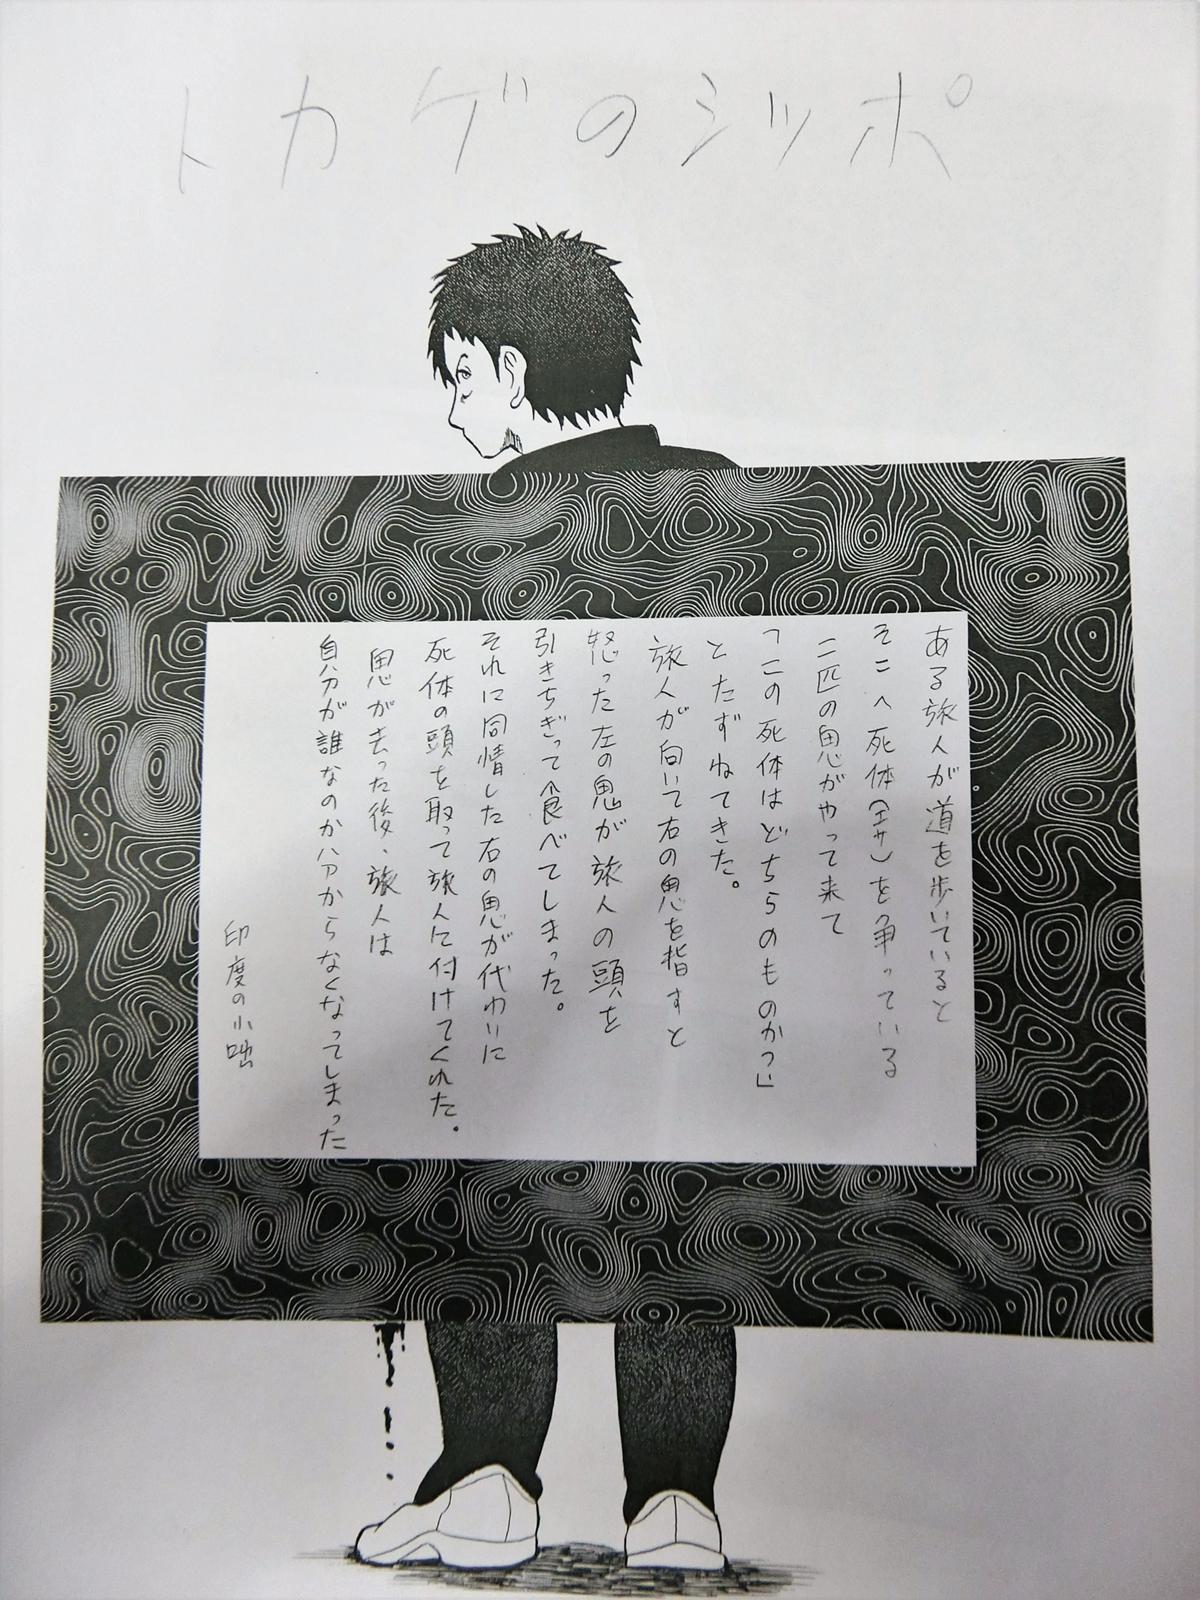 トカゲのシッポ
ある旅人が道を歩いていると
そこへ死体(エサ)を争っている
二匹の鬼がやって来て
「この死体はどちらのものか?」
とたずねてきた。
旅人が向いて右の鬼を指すと
怒った左の鬼が旅人の頭を
引きちぎって食べてしまった。
それに同情した右の鬼が代わりに
死体の頭を取って旅人に付けてくれた。
鬼が去った後、旅人は
自分が誰なのか分からなくなってしまった
印度の小咄